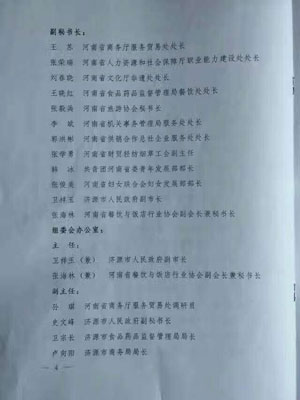 副秘书长：
王 苏 河南省商务厅服务贸易处处长
张荣瑞 河南省人力资源和社会保障厅职业能力建设处处长
刘春晓 河南省文化厅非遗处处长
王晓红 河南省食品药品监督管理局餐饮处处长
张毅 河南省旅游协会秘书长
李 斌 河南省机关事务管理局服务处处长
郭洪彬 河南省供销合作总社企业服务处处长
张学勇 河南省财贸轻纺烟草工会副主任
韩 冰 共青团河南省委青年发展部部长
张俊美 河南省妇女联合会妇女发展部部长
卫祥玉 济源市人民政府副市长
张海林 河南省餐饮与饭店行业协会副会长兼秘书长
组委会办公室：
主 任：
卫祥玉（兼） 济源市人民政府副市长
张海林（兼） 河南省餐饮与饭店行业协会副会长兼秘书长
副主任：
孙 河南省商务厅服务贸易处调研员
史文峰 济源市人民政府副秘书长
卫宗长 济源市食品药品监督管理局局长
卢向阳 济源市商务局局长
— 4 —